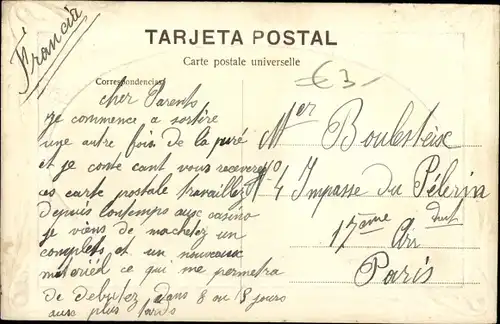 Francia
TARJETA POSTAL
Carte postale universelle
Correspondencias
€3-
cher Parents
je commence a sortire
une autre fois de la puré
et je conte cant vous receverez
ces carte postale travaillez
depuis lontemps aux casino
je viens de m'achetez un
complets et un nouveaux
materiéd ce qui me permetra
de debutez dans 8 ou 15 jours
aux plus tards
Mer Boulesteix
No 4 Impasse du Pélerin
17eme Arr dmt
Paris